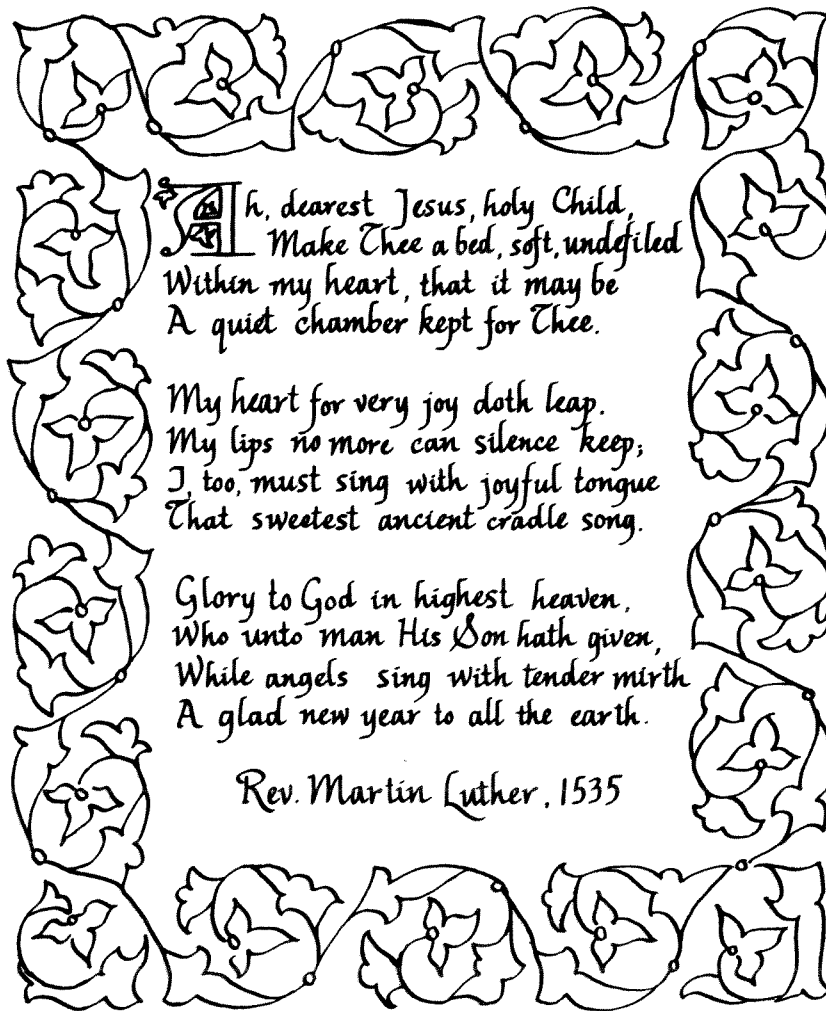 Ah, dearest Jesus, holy Child,
Make Thee a bed, soft, undefiled
Within my heart, that it may be
A quiet chamber kept for Thee.
My heart for very joy doth leap.
My lips no more can silence keep;
I, too, must sing with joyful tongue
That sweetest ancient cradle song.
Glory to God in highest heaven,
Who unto man His Son hath given,
While angels sing with tender mirth
A glad new year to all the earth.
Rev. Martin Luther, 1535